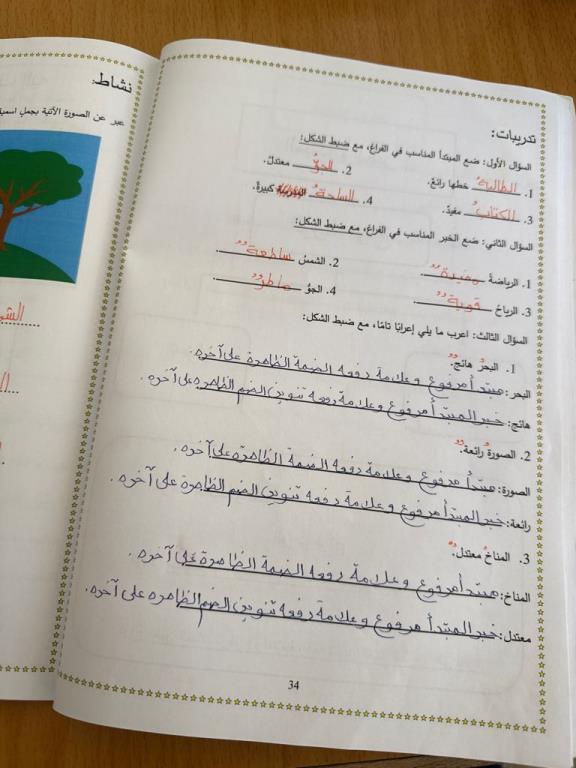 تدريبات:
السؤال الأول: ضع المبتدأ المناسب في الفراغ، مع ضبط الشكل:
1. الطالبةُ خطها رائع. 2. الجوُّ معتدل.
3. الكتابُ مفيد. 4. الساحةُ كبيرة.
السؤال الثاني: ضع الخبر المناسب في الفراغ، مع ضبط الشكل:
1. الرياضة مفيدةٌ 2. الشمس ساطعةٌ
3. الرياح قويةٌ 4. الجو ماطرٌ
السؤال الثالث: اعرب ما يلي إعرابًا تامًا، مع ضبط الشكل:
1. البحرُ هائجٌ.
البحر: مبتدأ مرفوع وعلامة رفعه الضمة الظاهرة على آخره.
هائج: خبر المبتدأ مرفوع وعلامة رفعه تنوين الضم الظاهره على آخره.
2. الصورةُ رائعةٌ.
الصورة: مبتدأ مرفوع وعلامة رفعه الضمة الظاهرة على آخره.
رائعة: خبر المبتدأ مرفوع وعلامة رفعه تنوين الضم الظاهرة على آخره.
3. المناخُ معتدلٌ.
المناخ: مبتدأ مرفوع وعلامة رفعه الضمة الظاهرة على آخره.
معتدل: خبر المبتدأ مرفوع وعلامة رفعه تنوين الضم الظاهره على آخره.
34
نشاط:
عبر عن الصورة الآتية بجمل